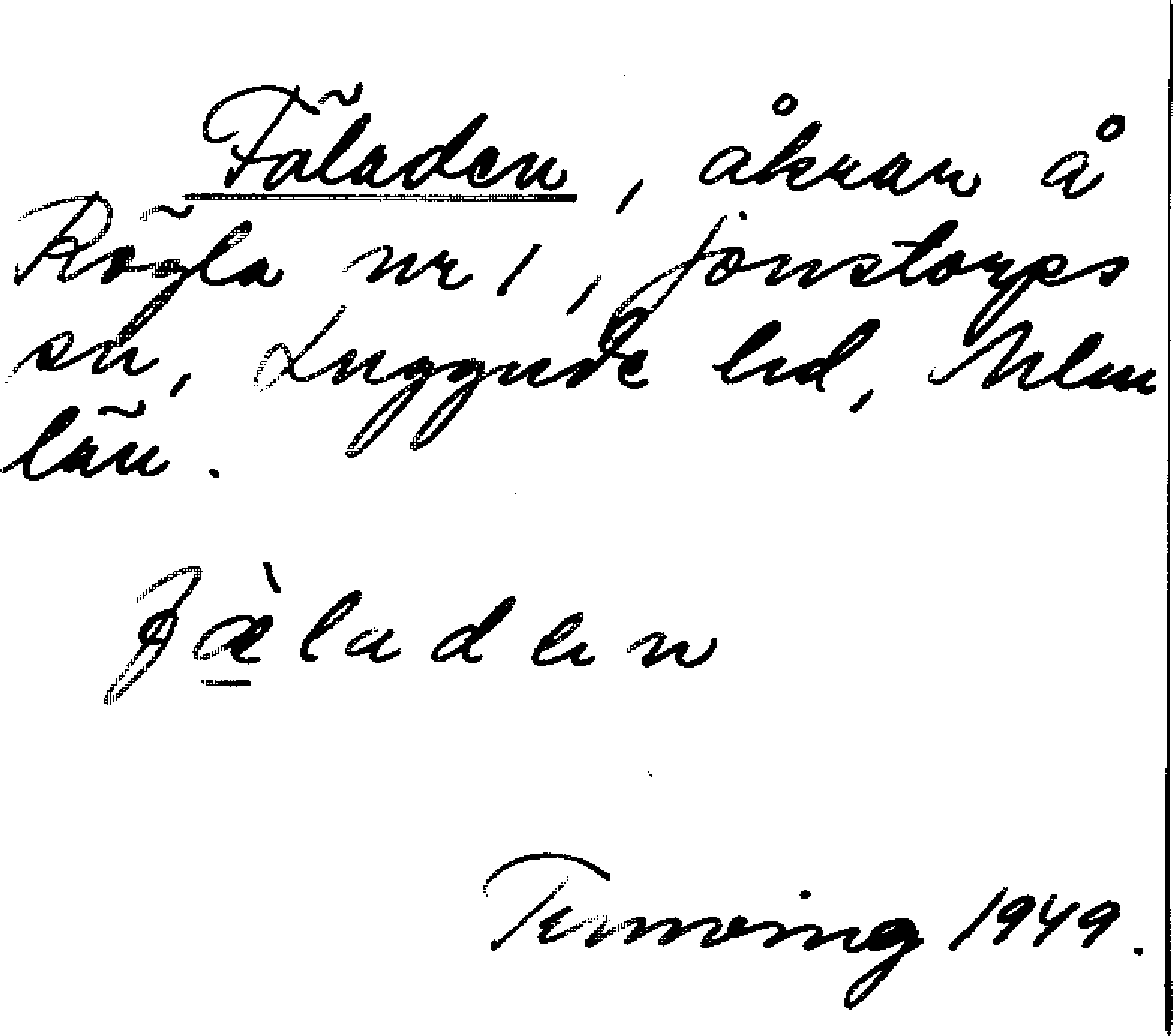 Fäladen, åkrar å
Rögla nr 1, Jonstorps
sn, Luggude hd, Mlm
län.
fæ̀laden
1949.